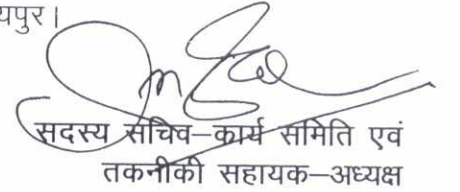 यपुर।
सदस्य सचिव–कार्य समिति एवं
तकनीकी सहायक–अध्यक्ष